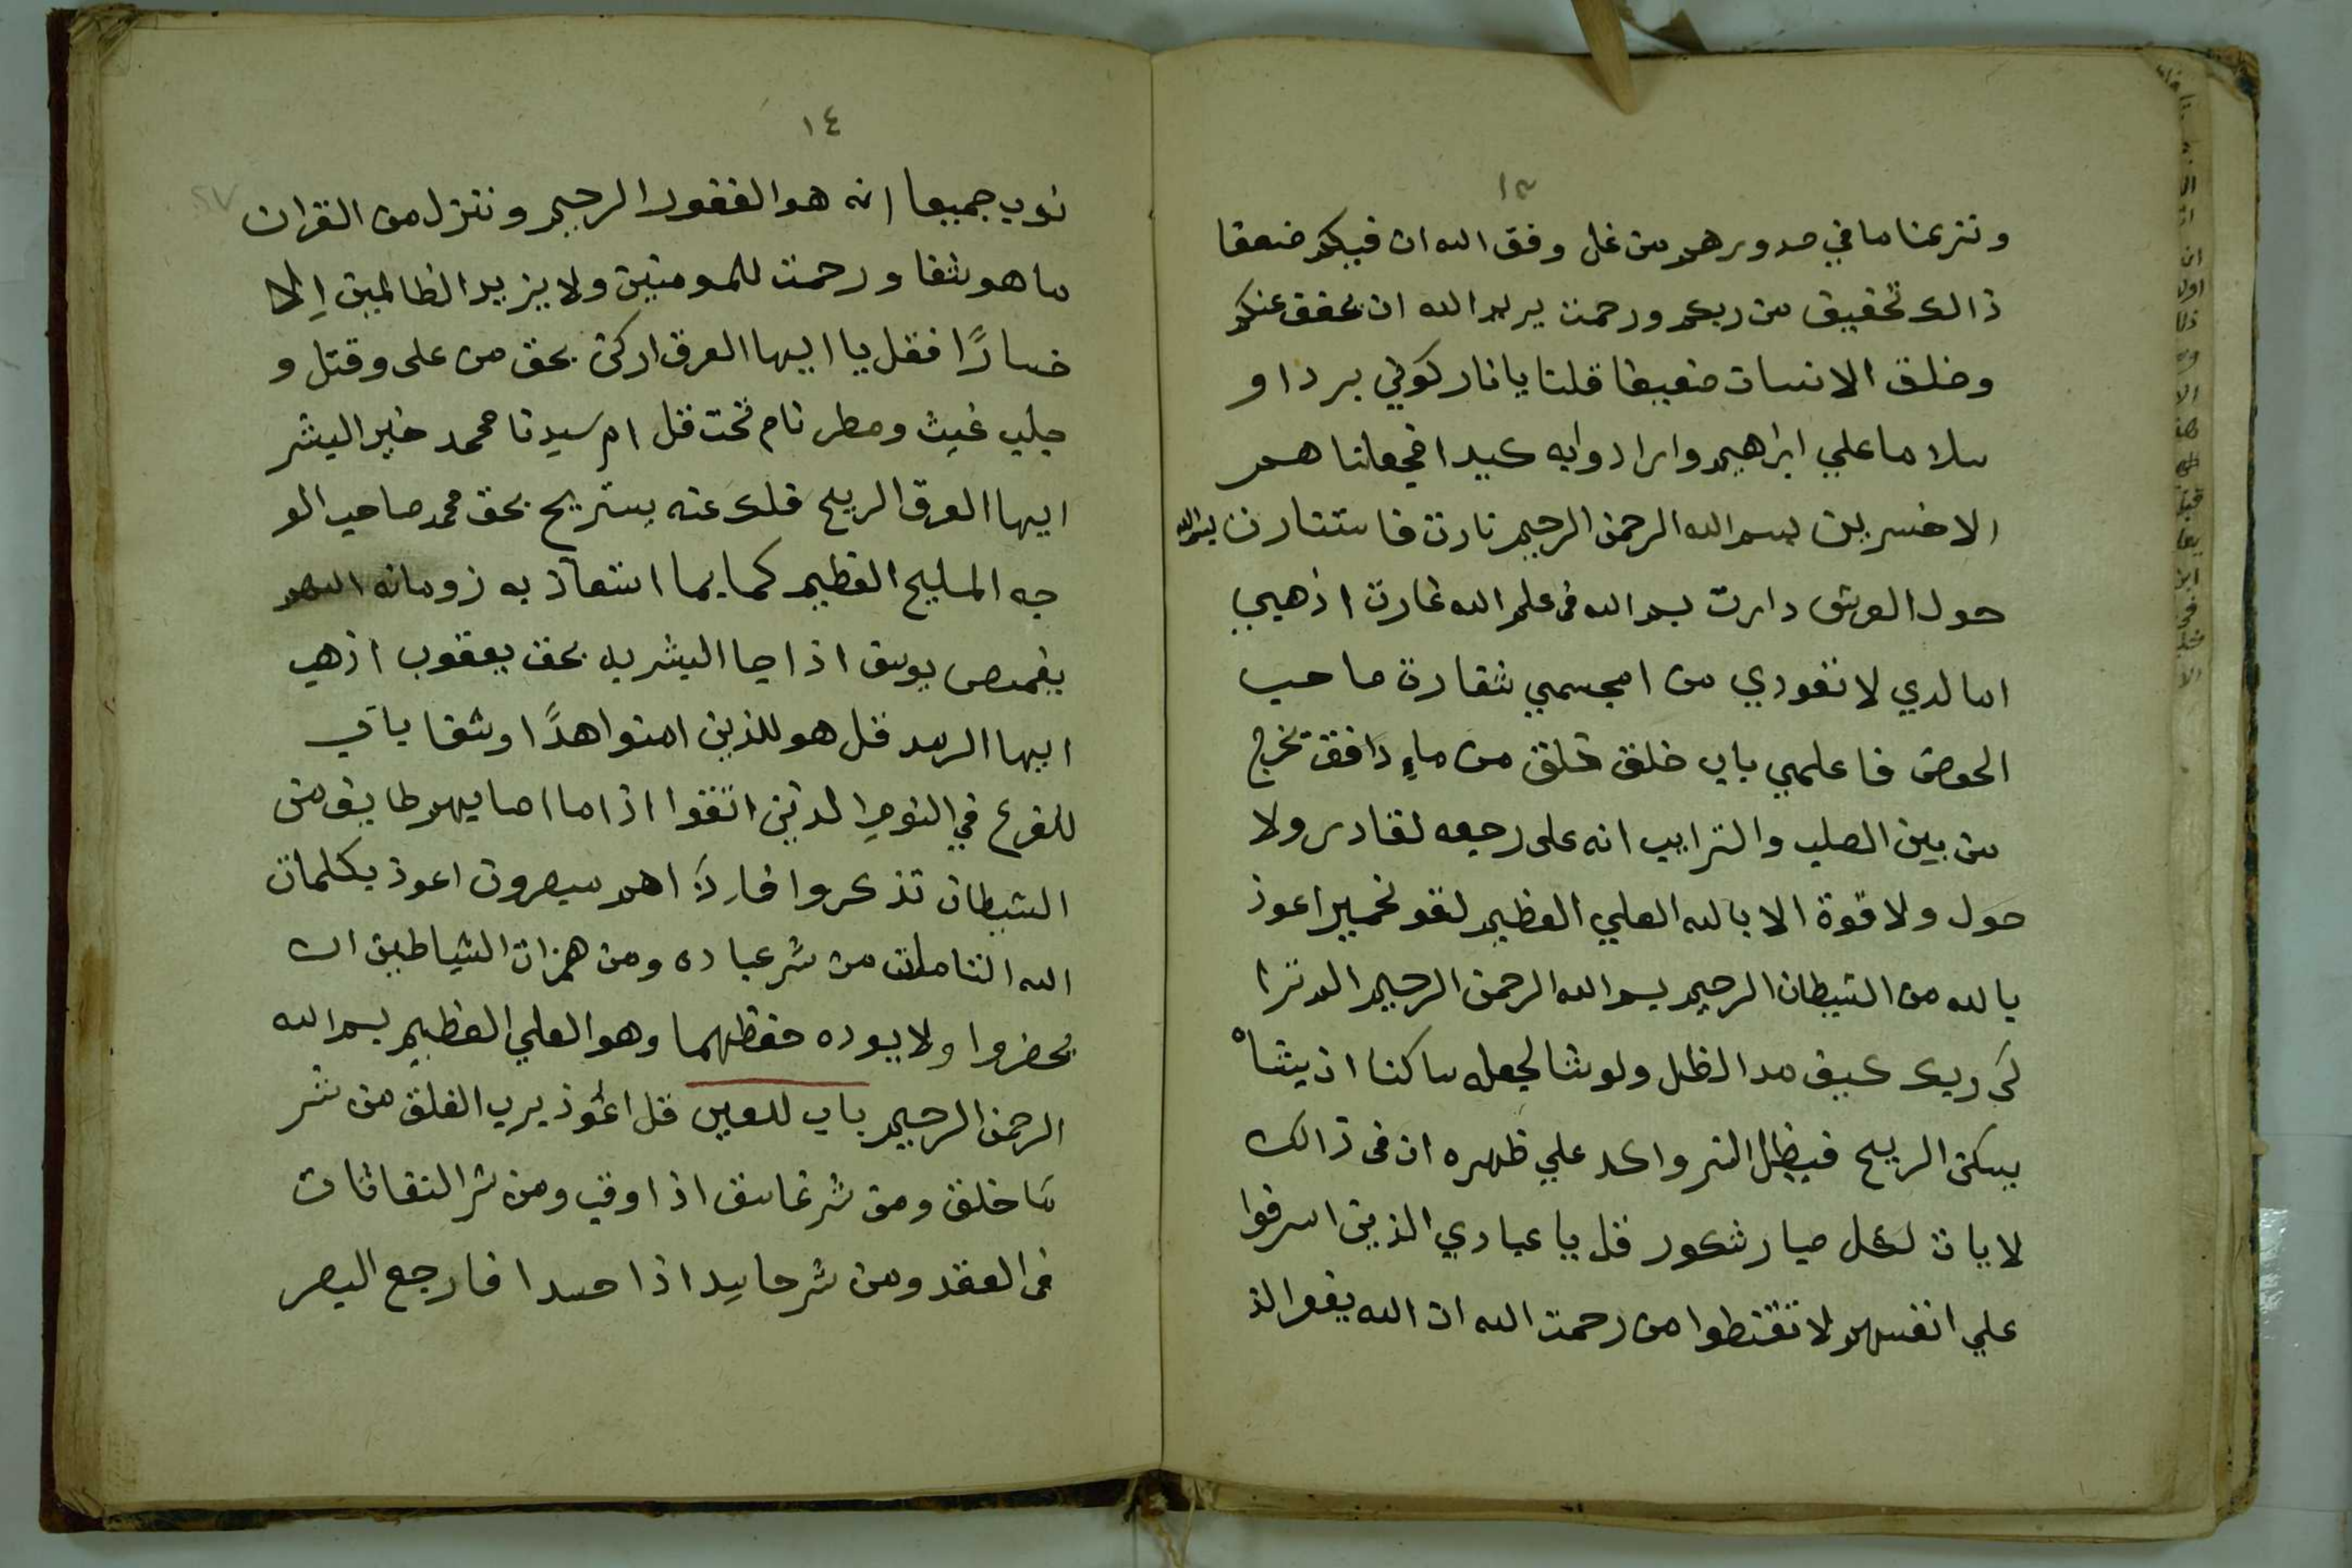 ١٣
ونزعنا ما في صدورهم من غل وفق الله ان فيكم ضعفا
ذالك تخفيف من ربكم ورحمت يريد الله ان يخفف عنكم
وخلق الانسان ضعيفا قلنا يا نار كوني بردا و
سلاما علي ابراهيم وارادوابه كيدا فجعلنا هم
الاخسرين بسم الله الرحمن الرحيم نارت فاستنارت
حول العرش دارت بسم الله في علم الله غارت اذهبي
لا تعودي من صاحب
الحوض فا علمي باب خلق خلق من ماءٍ دافق تخرج
من بين الصلب والترايب انه على رجعه لقادر ولا
حول ولا قوة الا بالله العلي العظيم اعوذ
بالله من الشيطان الرجيم بسم الله الرحمن الرحيم الم ترا
لى ربك كيف مد الظل ولو شا لجعله ساكنا ان يشاْ
يسكن الريح فيظل النرواكد علي ظهره ان فى ذالك
لايات لكل صبار شكور قل يا عبادي الذين اسرفوا
علي انفسهم لا تقنطوا من رحمت الله ان الله يغفر الذ
١٤
نوب جميعا انه هو الغفور الرحيم وننزل من القران
ما هو شفا ورحمت للمومنين ولا يزيد الظالمين اِلا
خسارًا فقل يا ايها العرق اركن بحق من على وقتل و
جلب غيث ومطر نام تحت قل ام سيدنا محمد خير البشر
ايها العرق الريح فلك عنه يستريح بحق محمد صاحب الو
جه المليح العظيم كما يما استعاذ به
بقميص يوسف اذا جا البشر يد بحق يعقوب اذهب
ايها الرمد قل هو للذين امنوا هدًا وشفا باب
للفزع في النوم الذين اتقوا اذا ما اصابهم طايف من
الشيطان تذكروا فاذا هم مبصرون اعوذ بكلمات
الله التامات من شر عباده ومن همزات الشياطين ان
يحضروا ولا يوده حفظهما وهو العلي العظيم بسم الله
الرحمن الرحيم باب للعين قل اعُوذ برب الفلق من شر
مَا خلق ومن شر غاسق اذا وقب ومن شر النفاثات
فى العقد ومن شر حاسد اذا حسد ا فارجع البصر